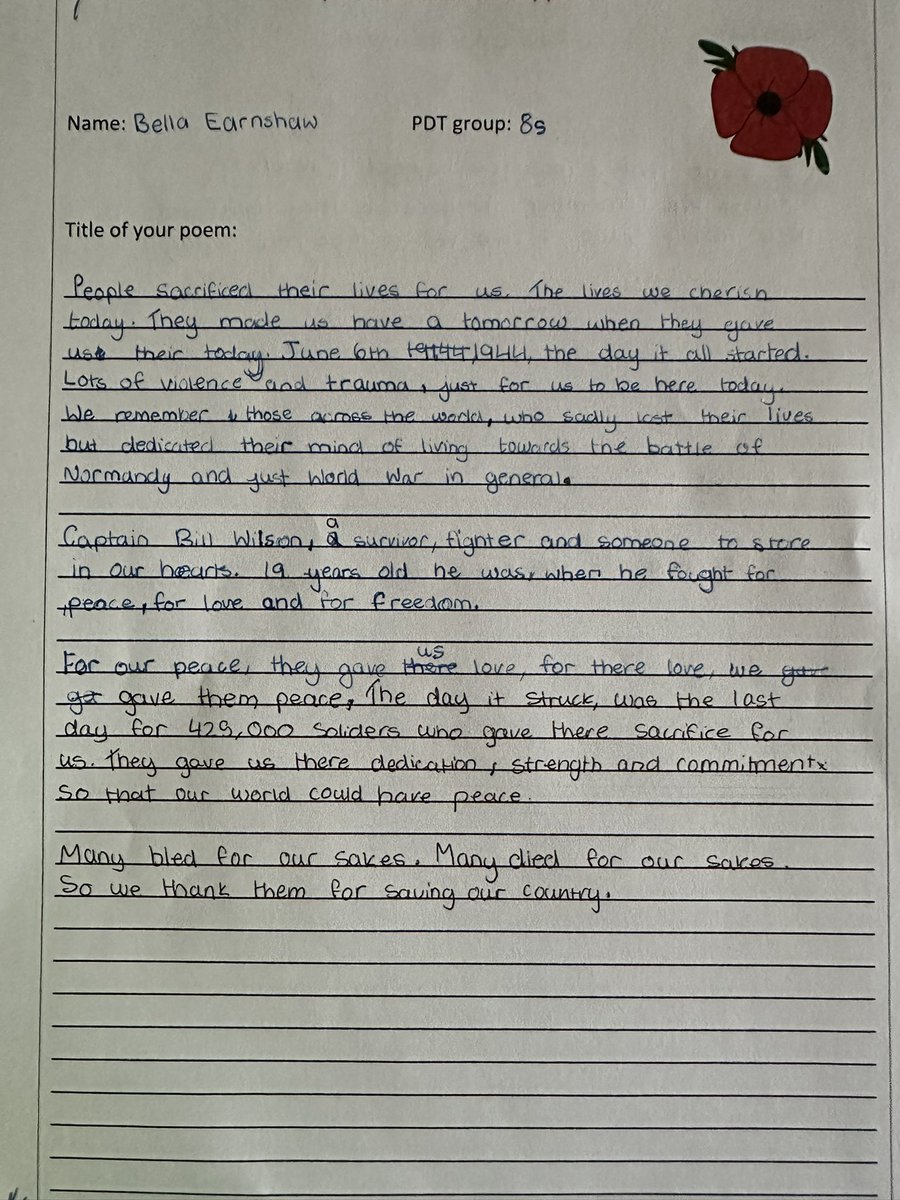 Name: Bella Earnshaw PDT group: 8s
Title of your poem:
People sacrificed their lives for us. The lives we cherish
today. They made us have a tomorrow when they gave
us their today. June 6th 1944, the day it all started.
Lots of violence and trauma, just for us to be here today.
We remember those across the world, who sadly lost their lives
but dedicated their mind of living towards the battle of
Normandy and just World War in general.
Captain Bill Wilson, a survivor, fighter and someone to store
in our hearts. 19 years old he was, when he fought for
peace, for love and for freedom.
For our peace, they gave us love, for there love, we
gave them peace, The day it struck, was the last
day for 429,000 soliders who gave there sacrifice for
us. They gave us there dedication, strength and commitment
So that our world could have peace.
Many bled for our sakes. Many died for our sakes.
So we thank them for saving our country.